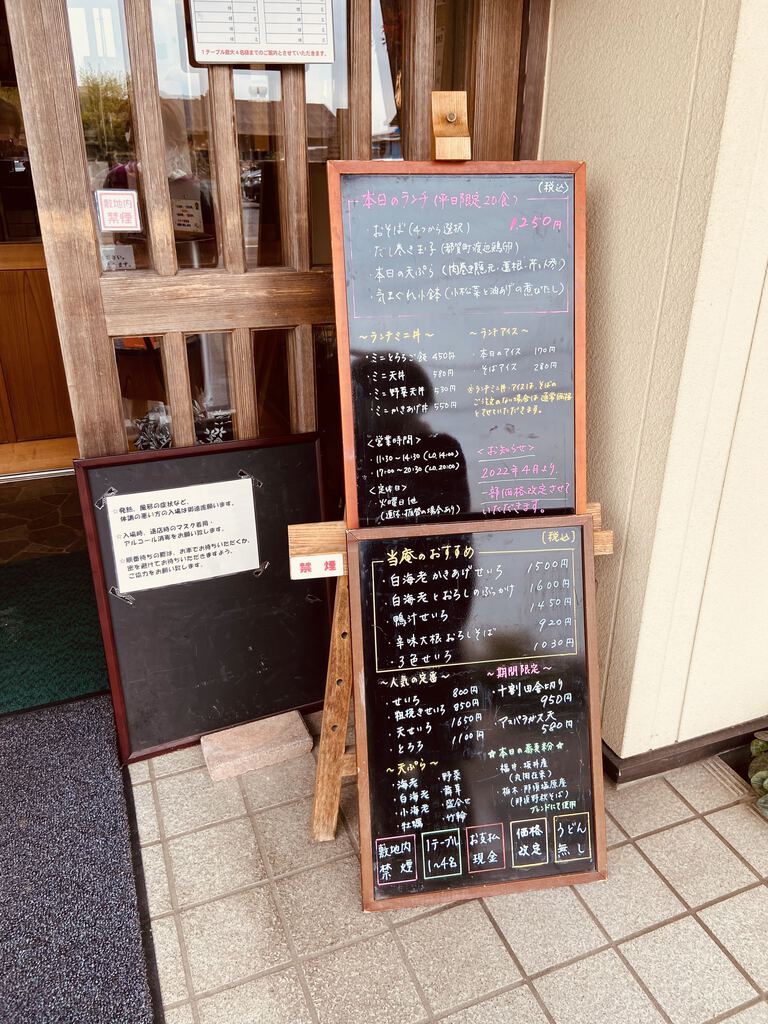 1テーブル最大4名様までのご案内とさせていただきます。
敷地内
禁煙
(税込)
本日のランチ(平日限定20食)
1,250円
・おそば(4つから選択)
だし巻き玉子(都賀町渡辺鶏卵)
・本日の天ぷら(肉巻き隠元・蓮根・芋・人参)
・気まぐれ小鉢(小松菜と油あげの煮びたし)
~ランチミニ丼~
・ミニとろろご飯 450円
・ミニ天丼 580円
・ミニ野菜天丼 530円
・ミニかきあげ丼 550円
~ランチアイス~
・本日のアイス 170円
・そばアイス 280円
※ランチミニ丼・アイスは、そばの
ご注文のない場合は通常価格
とさせていただきます。
<営業時間>
・11:30~14:30(L.O.14:00)
・17:00~20:30(L.O.20:00)
<定休日>
・火曜日他
(連休・振替の場合あり)
<お知らせ>
2022年4月より、
一部価格改定させて
いただきます。
☆発熱、風邪の症状など、
体調の悪い方の入場は御遠慮願います。
☆入場時、退店時のマスク着用・
アルコール消毒をお願い致します。
☆順番待ちの際は、お車でお待ちいただくか、
密を避けてお待ちいただきますよう、
ご協力をお願い致します。
禁煙
(税込)
当庵のおすすめ
・白海老かきあげせいろ 1500円
・白海老とおろしのぶっかけ 1600円
・鴨汁せいろ 1450円
・辛味大根おろしそば 920円
・3色せいろ 1030円
~人気の定番~
・せいろ 800円
・粗挽きせいろ 850円
・天せいろ 1650円
・とろろ 1100円
~期間限定~
・十割田舎切り
950円
・アスパラガス天
500円
~天ぷら~
・海老 ・野菜
・白海老 ・舞茸
・小海老 ・盛合せ
・牡蠣 ・竹輪
★本日の蕎麦粉★
・福井・坂井産
(丸岡在来)
・栃木・那須塩原産
(那須野秋そば)
ブレンドにて使用
敷地内
禁煙
1テーブル
1~4名
お支払
現金
価格
改定
うどん
無し